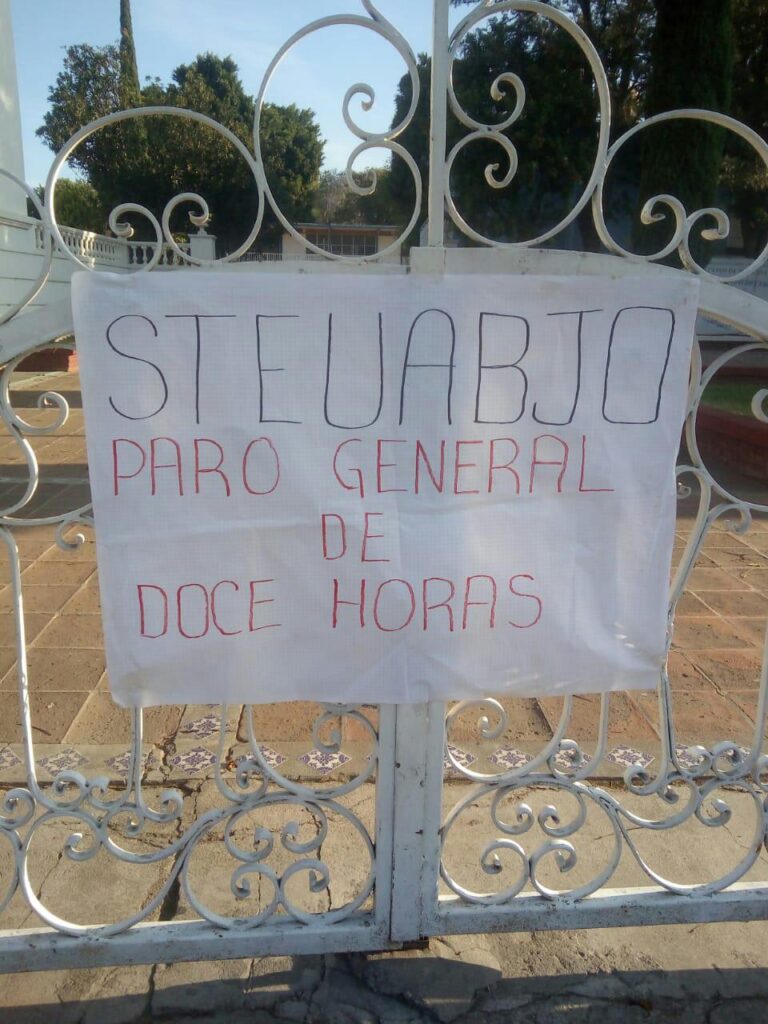 STEUABJO
PARO GENERAL
DE
DOCE HORAS